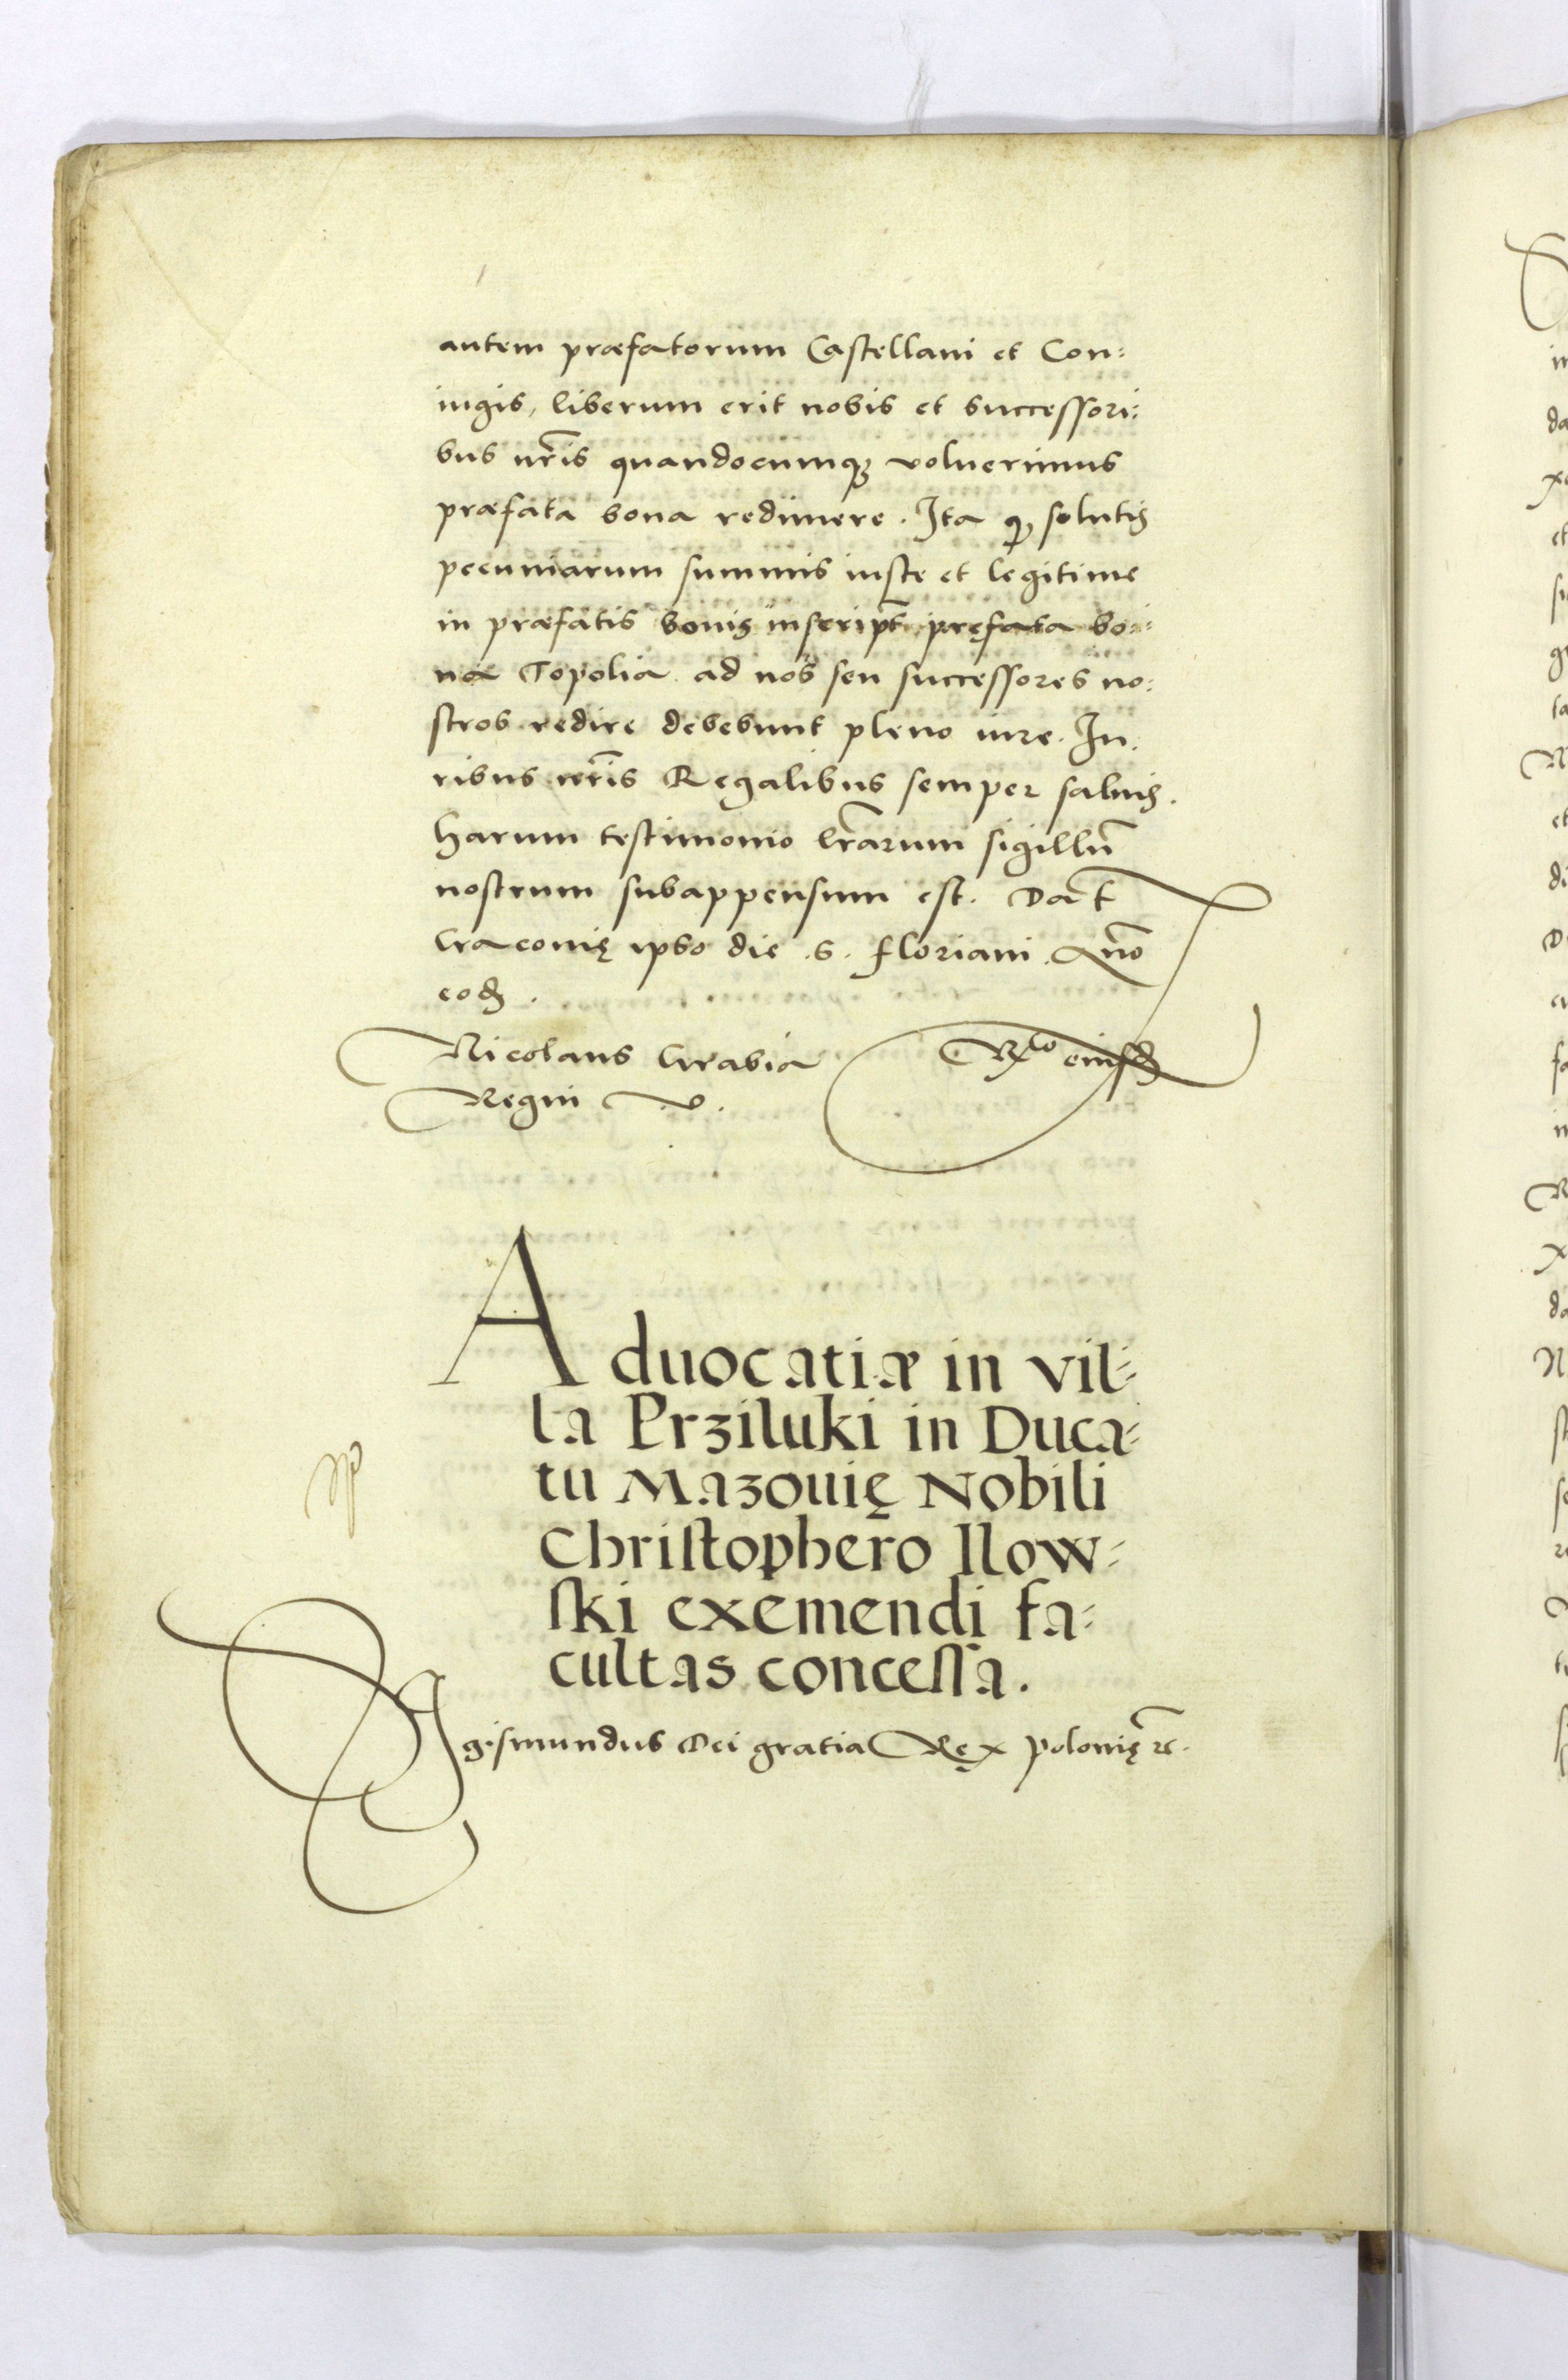 autem præfatorum Castellani et Con:
iugis, liberum erit nobis et successori:
bus nr̃is quandocumqꝫ voluerimus
præfata bona redimere. Ita ꝙ solutis
pecuniarum summis iuste et legitime
in præfatis bonis inscript̃ pręfata bo:
na Topolia ad nos seu successores no:
stros redire debebunt pleno iure. Iu:
ribus nr̃is Regalibus semper saluis.
Harum testimonio lr̃arum sigillũ
nostrum subappensum est. Dat̃
Cracovię ipso die .S. Floriani. Anno
eodꝫ.
Nicolaus Crabia eiusdꝫ
Regni V.
Aduocatiæ in vil:
la Prziluki in Duca:
tu Mazouię Nobili
Christophero Ilow:
ski exemendi fa:
cultas concessa.
Sigismundus Dei gratia Rex Polonię ꝛc.